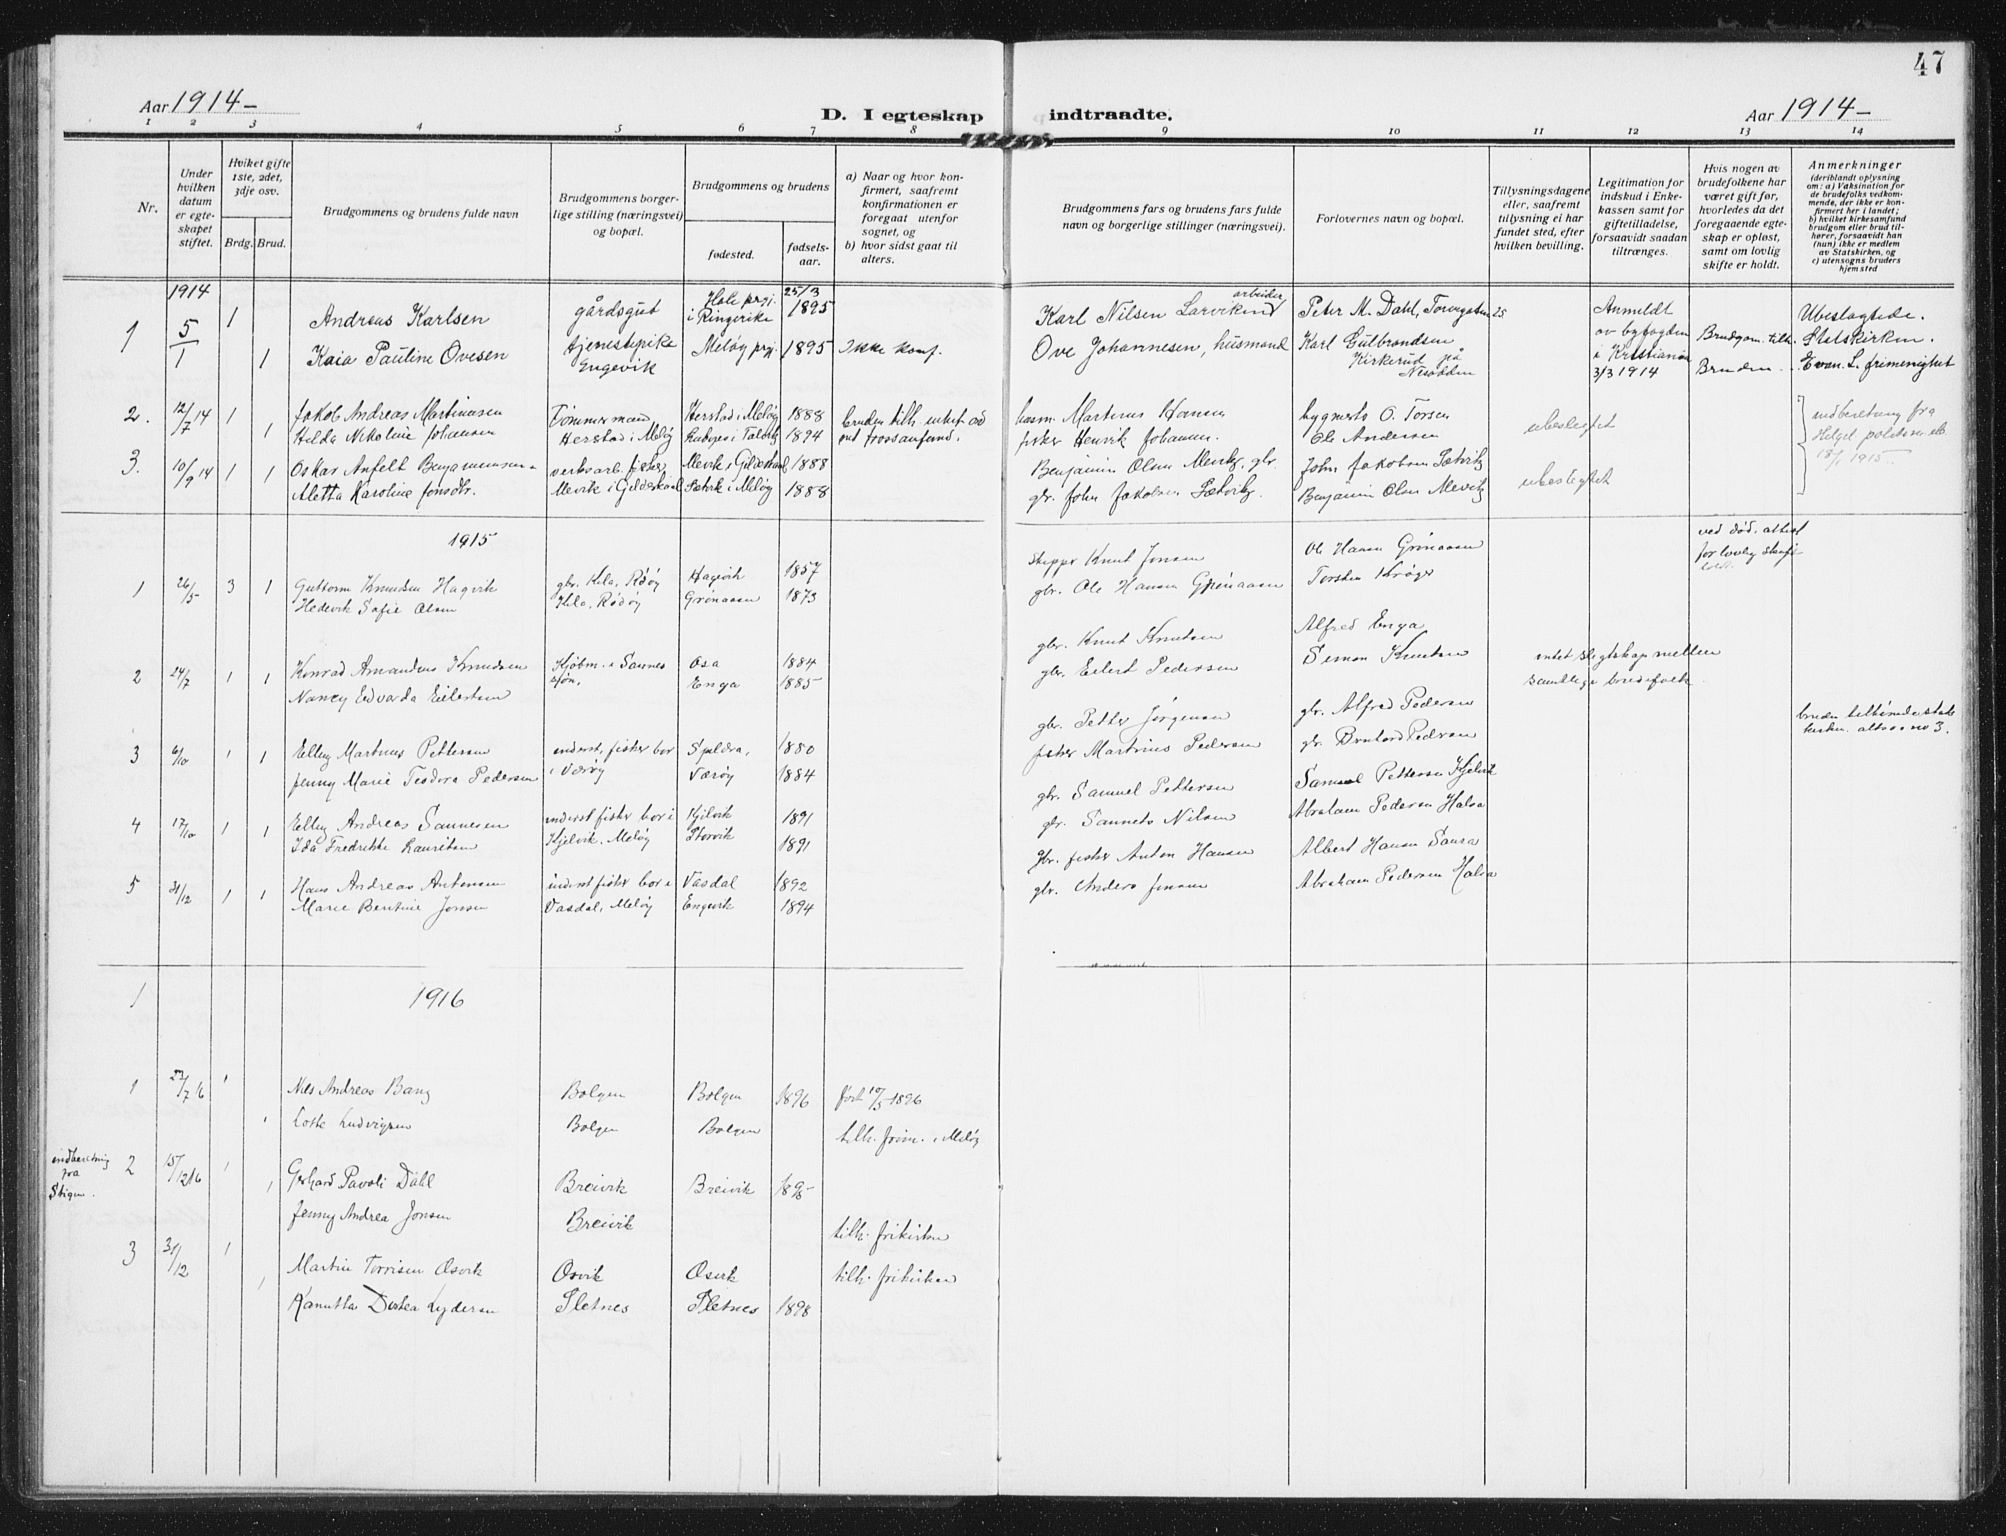 47
Aar 1914-
D. I egteskap indtraadte.
Aar 1914-
1 2 3 4 5 6 7 8 9 10 11 12 13 14
Nr.
Under hvilken datum er egteskapet stiftet.
Hvilket gifte 1ste, 2det, 3dje osv.
Brdg. Brud.
Brudgommens og brudens fulde navn
Brudgommens borgerlige stilling (næringsvei) og bopæl.
Brudgommens og brudens
fødested.
fødselsaar.
a) Naar og hvor konfirmert, saafremt konfirmationen er foregaat utenfor sognet, og
b) hvor sidst gaat til alters.
Brudgommens fars og brudens fars fulde navn og borgerlige stillinger (næringsvei).
Forlovernes navn og bopæl.
Tillysningsdagene eller, saafremt tillysning ei har fundet sted, efter hvilken bevilling.
Legitimation for indskud i Enkekassen samt for giftetilladelse, forsaavidt saadan tiltrænges.
Hvis nogen av brudefolkene har været gift før, hvorledes da det foregaaende egteskap er opløst, samt om lovlig skifte er holdt.
Anmerkninger (deriblandt oplysning om: a) Vaksination for de brudefolks vedkommende, der ikke er konfirmert her i landet; b) hvilket kirkesamfund brudgom eller brud tilhører, forsaavidt han (hun) ikke er medlem av Statskirken, og c) utensogns bruders hjemsted
1914
1 5/1 1 Andreas Karlsen gårdsgut Hole prgj. i Ringerike 25/3 1895 Karl Nilsen Larvikind arbeider Peter M. Dahl, Torvegaten 25 Anmeldt Ubeslægtede.
1 Kaia Pauline Ovesen tjenestepike Engevik Meløy prgj. 1895 Ikke konf. Ove Johannesen, husmand Karl Gulbrandsen Kirkerud på Nesodden av byfogden i Kristiania 3/3 1914 Brudgom. tilh. Statskirken.
Bruden Evan. L. frimenighet
2. 12/7 14 1 Jakob Andreas Martinusen Tømmermand Herstad i Meløy 1888 bruden tilh. husm. Martinus Hansen O. Torsen ubeslegtet indberetning fra
1 Helda Nikoline Johansen Herstad i Meløy 1894 fisker Henrik Johansen. Ole Andersen Helgel. 18/1 1915.
3. 10/9 14 1 1 Oskar Anfelt Benjaminsen fisker Mevik i Gildeskaal 1888 Benjamin Olsen Mevik, gbr. John Jakobsen Sætvik ubeslegtet
Aletta Karoline Jonsdtr. Mevik i Gildeskaal Sætvik i Meløy 1888 gbr. John Jakobsen Sætvik. Benjamin Olsen Mevik
1915
1 26/5 3 1 Guttorm Knudsen Hagvik gbr. Kila, Rødøy Hagevik 1857 skipper Knut Jonsen Ole Hansen Grønaasen ved død, attest for lovlig skifte
Hedevik Sofie Olsen Kila, Rødøy Grønaasen 1873 gbr. Ole Hansen Grønaasen Torsten Krøger
2 24/7 1 1 Konrad Amandus Knudsen Kjøbm. i Sannessjøn, Osa 1884 gbr. Knut Knutsen Alfred Enga intet slegtskap mellem
Nancy Edvarda Eilertsen Enga 1885 gbr. Eilert Pedersen Simon Knutsen samtlige brudefolk
3 6/10 1 1 Elling Martinus Pettersen inderst, fisker bor i Værøy Speldra, 1880 gbr. Petter Jørgensen gbr. Alfred Pedersen bruden tilhørende stats
Jenny Marie Teodora Pedersen Værøy 1884 fisker Martinus Pedersen gbr. Pedersen kirken. altsaa no 3.
4 17/10 1 1 Elling Andreas Sannesen inderst fisker bor i Kjelvik 1891 gbr. Samuel Pettersen Samuel Pettersen Kjelvik
Ida Fredrikke Lauritsen Kjelvik, Meløy Storvik 1891 gbr. Nilsen Abraham Pedersen Halsa
5 31/12 1 1 Hans Andreas Antonsen inderst fisker bor i Vasdal 1892 gbr. fisker Anton Hansen Albert Hansen Saura
Marie Bentine Jonsen Vasdal, Meløy Engevik 1894 gbr. Anders Jensen Abraham Pedersen Halsa
1 1916
1 23/7 16 1 Nils Andreas Bang Bolgen Bolgen 1896 født 10/5 1896
1 Lotte Ludvigsen Bolgen Bolgen tilh. frim. i Meløy
indberetning fra Skigen.
2 15/12 16 1 Gerhard Pavoli Dahl Breivik Breivik
1 Jenny Andrea Jonsen Breivik tilh. frikirken
3 31/12 1 Martin Torrisen Osvik Osvik Osvik tilh. frikirken
1 Kanutta Dortea Lydersen Sletnes Sletnes 1898